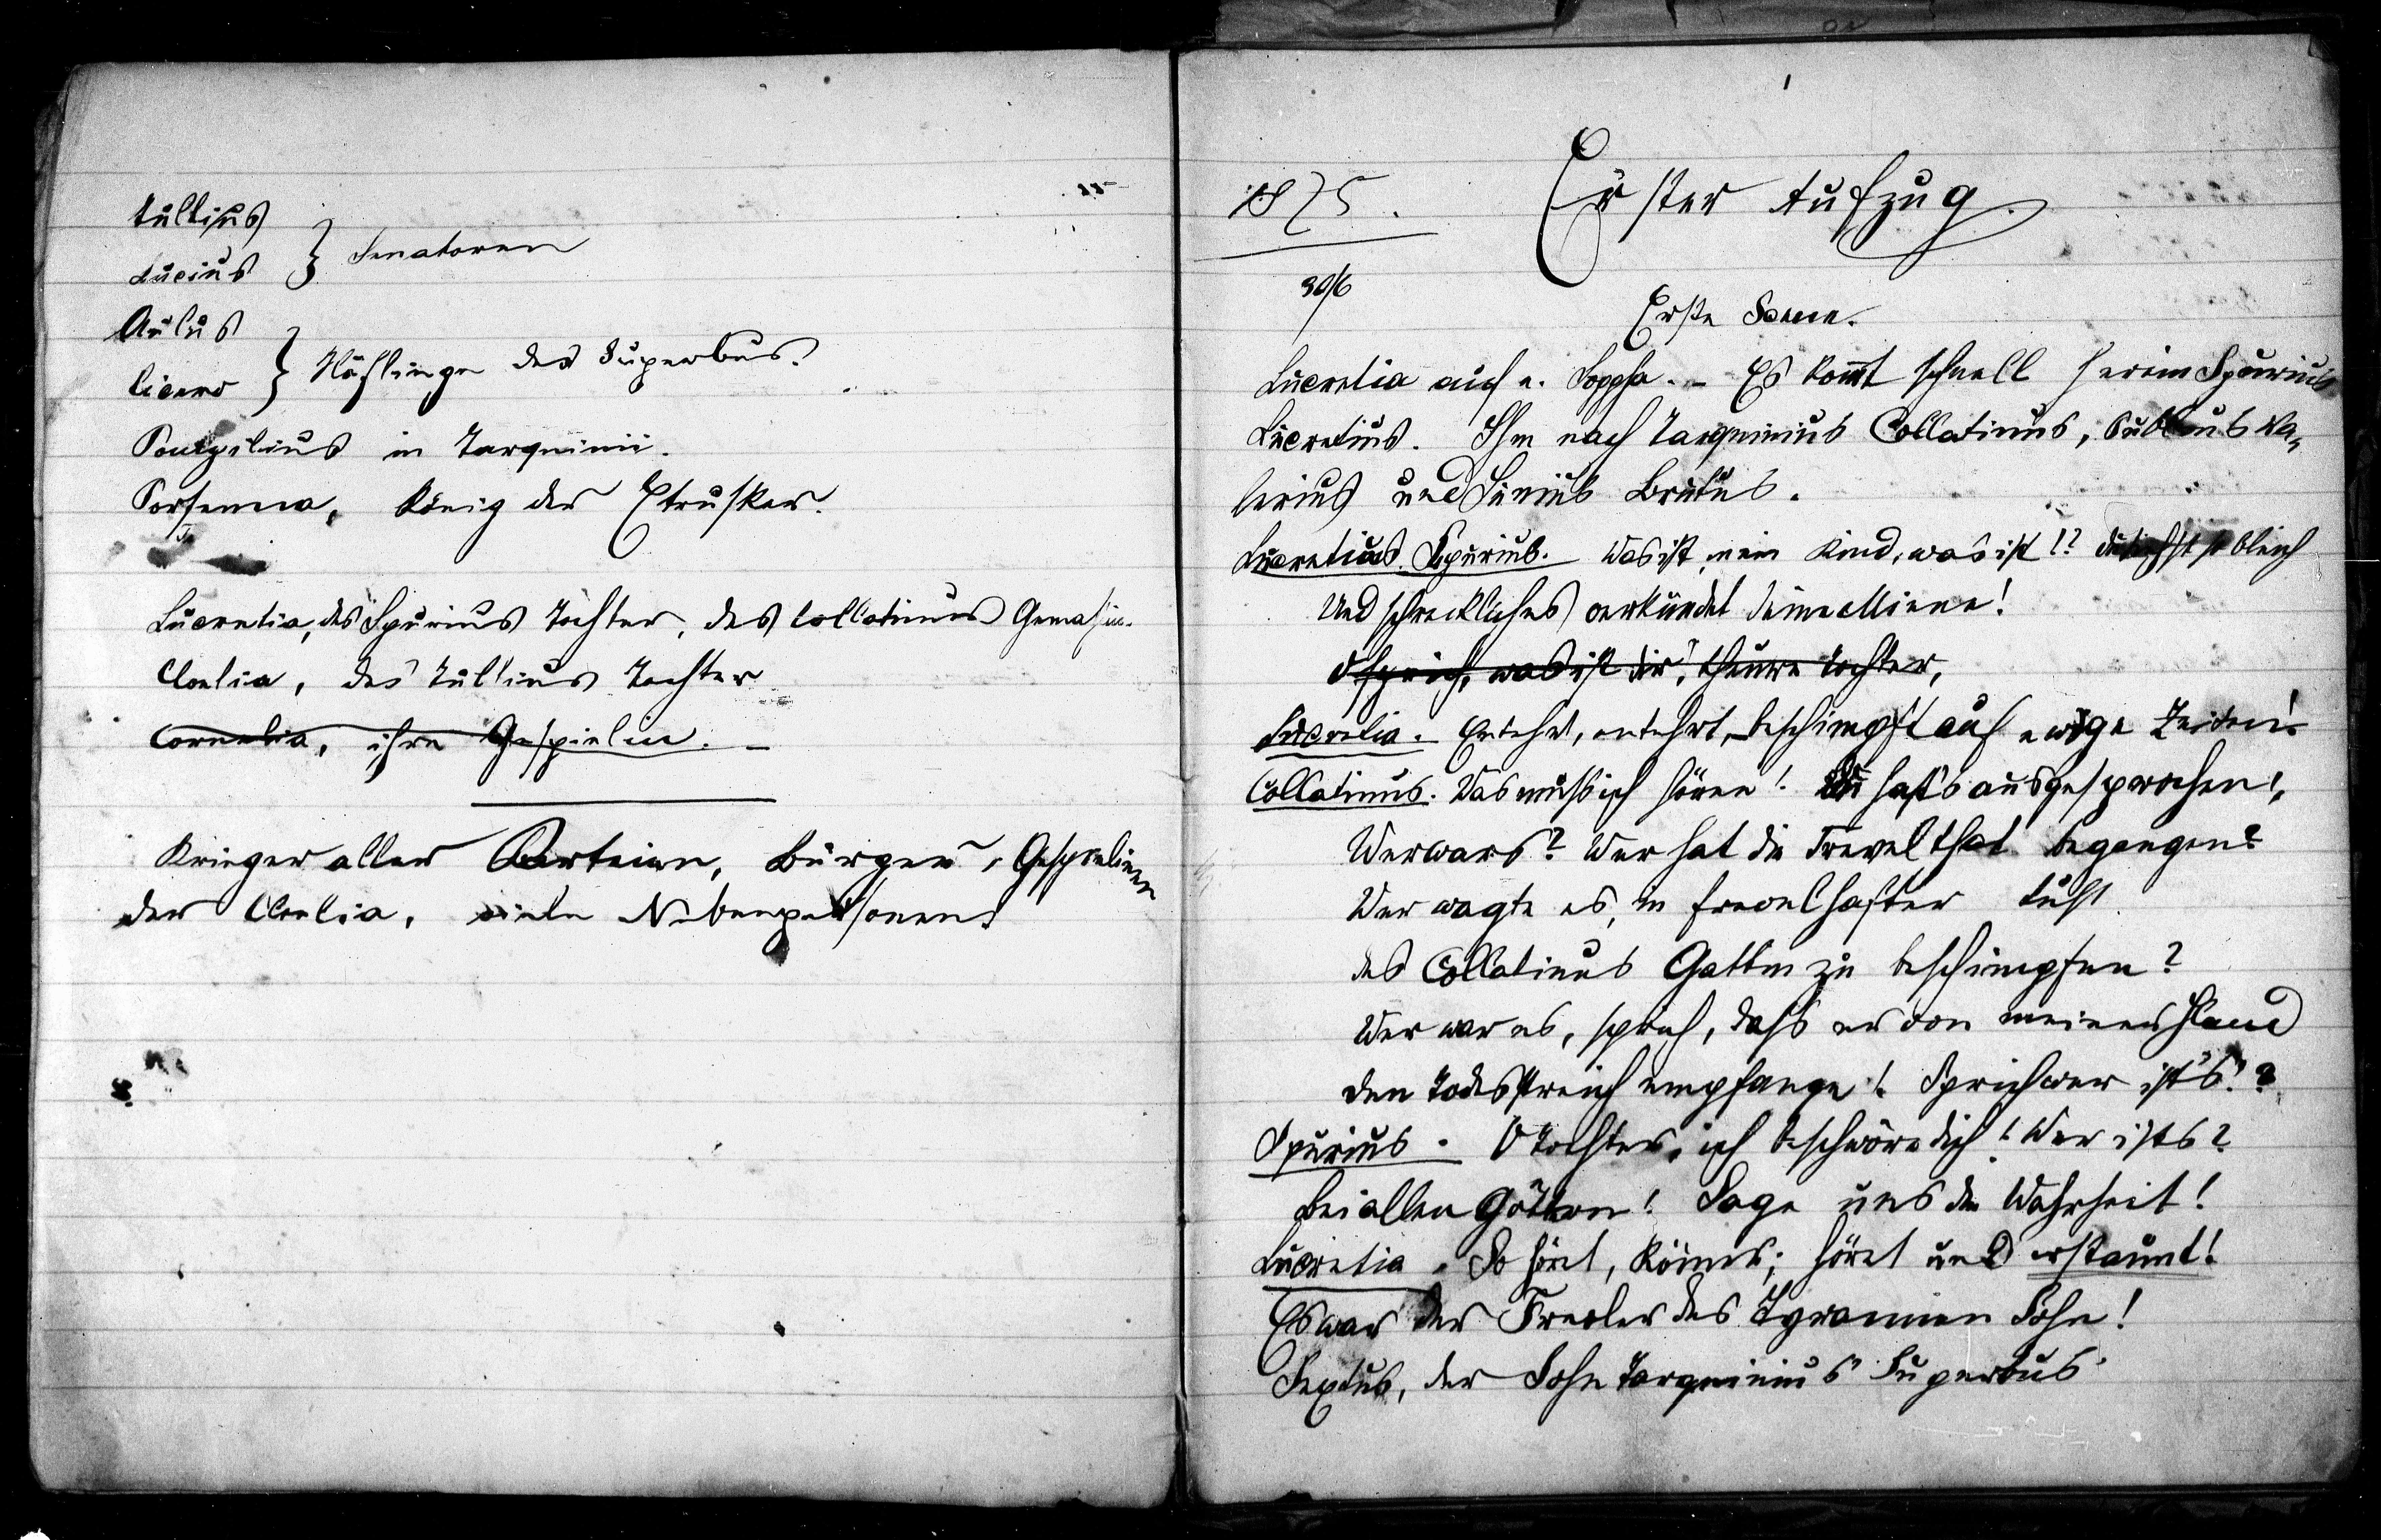 Tullius
Lucius } Senatoren
Aulus
Cicero } Höflinge des Superbus.
Pompilius in Tarquinii.
Porsenna, König der Etrusker.
Lucretia, des Spurius Tochter, des Collatinus Gemahlin.
Cloelia, des Tullius Tochter
Cornelia, ihre Gespielin. –
Krieger aller Parteien, Bürger, Gespielinen
der Cloelia, viele Nebenpersonen.
1
1875. Erster Aufzug.
30/6
Erste Scene.
Lucretia auf e. Sopha. – Es kommt schnell herein Spurius
Lucretius. Ihm nach Tarquinius Collatinus, Publius Va-
lerius und Junius Brutus.
Lucretius Spurius. Was ist, mein Kind, was ist!? du siehst so bleich
Und schreckliches verkündet deine Miene!
O sprich, was ist dir, theure Tochter,
Lucretia. Entehrt, entehrt, beschimpft auf ewige Zeiten!
Collatinus. Was muß ich hören! Du hast's ausgesprochen!,
Wer wars? Wer hat die Frevelthat begangen?
Wer wagte es, in frevelhafter Lust
des Collatinus Gattin zu beschimpfen?
Wer war es, sprich, daß er von meiner Hand
den Todesstreich empfange! Sprich wer ist's!?
Spurius. O Tochter, ich beschwöre dich! Wer ists?
Bei allen Göttern! Sage uns die Wahrheit!
Lucretia. So höret, Römer; höret und erstaunt!
Es war der Frevler des Tyrannen Sohn!
Sextus, der Sohn Tarquinius Superbus